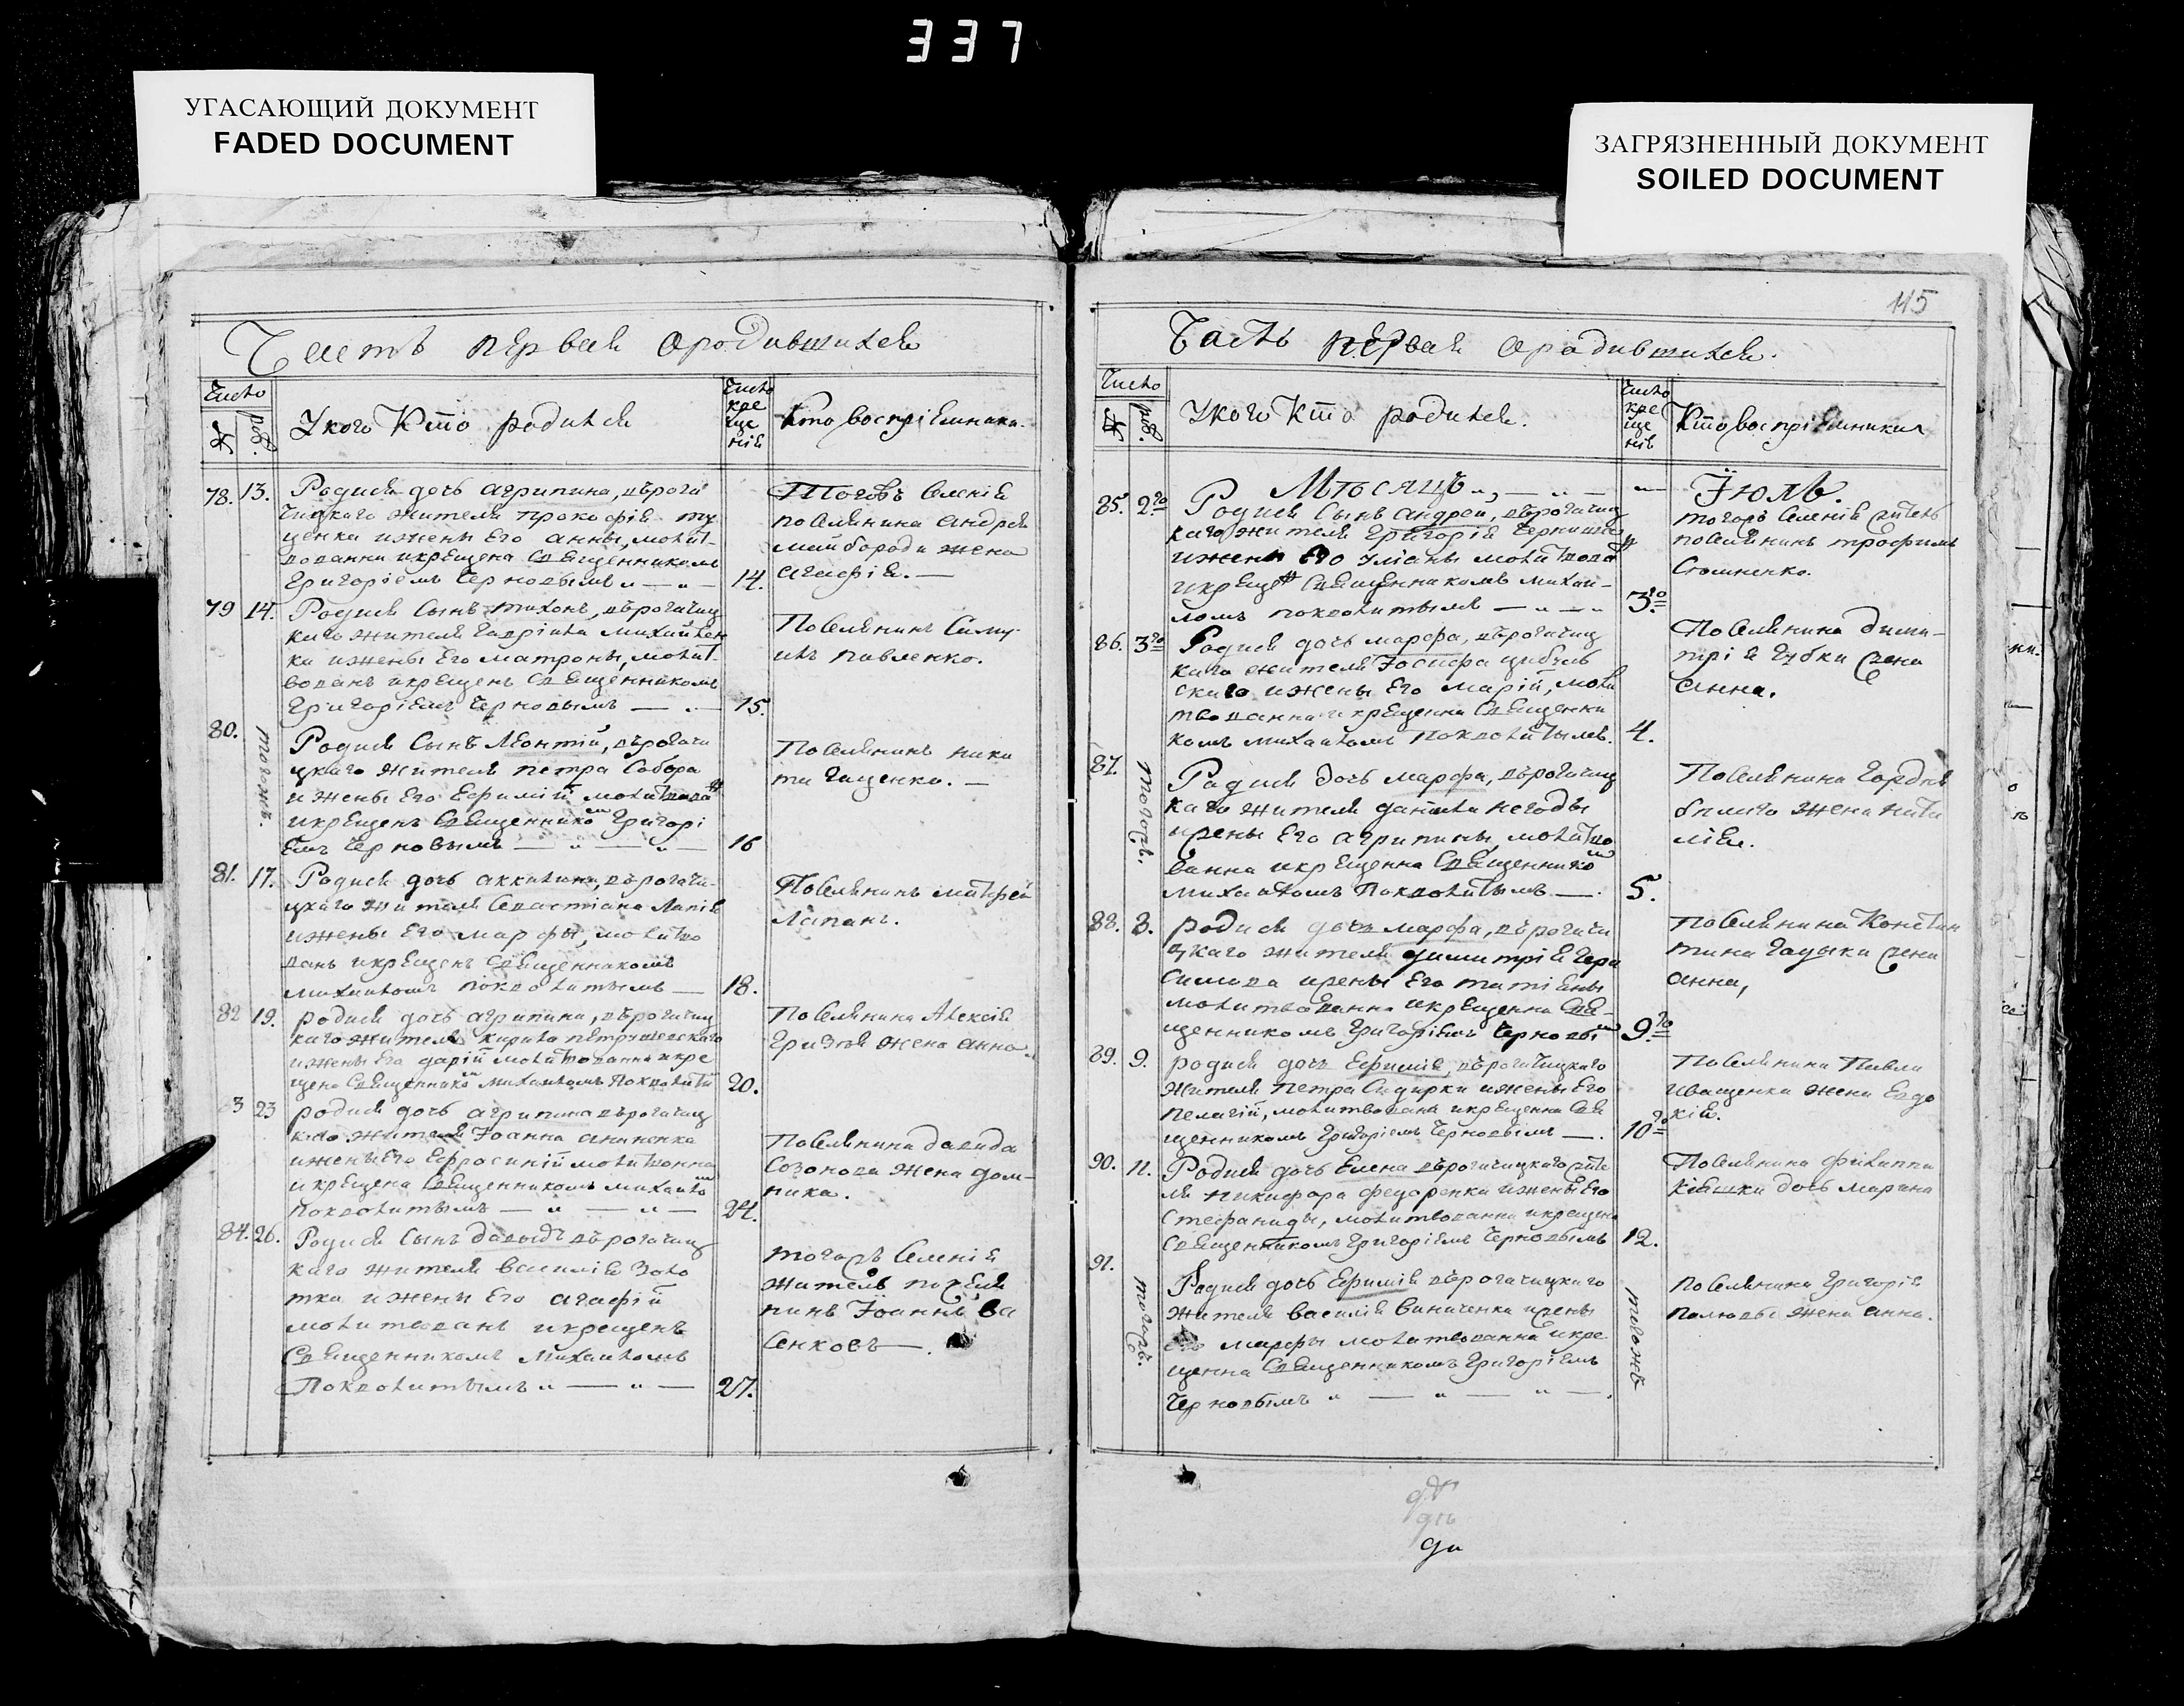 337
УГАСАЮЩИЙ ДОКУМЕНТ
FADED DOCUMENT
ЗАГРЯЗНЕННЫЙ ДОКУМЕНТ
SOILED DOCUMENT
Часть первая ородившихся
Число
№ род.
Укого Кто родился
Число крещенія
Кто воспріемники.
78. 13. Родися дочь агрипина, вѣрога
чицкаго жителя прокофія
ижены его анны, молит
вованна икрещена священникомъ
Григоріемъ Черновымъ 14.
Тогожъ Селенія
поселянина андрея
майбороди жена
агафія.
79 14. Родися Сынъ тихонъ, вѣрогачиц
каго жителя гавріила михайлен
ка ижены его матроны, молит
вованъ икрещенъ Священникомъ
Григоріемъ Черновымъ 15.
Поселянинъ Саму
илъ павленко.
80. тогожъ. Родися Сынъ Леонтій, вѣрогачи
цкаго жителя петра Собора
и жены его Ефиміи молитвова
икрещенъ Священнико Григорі
емъ Черновымъ 16
Поселянинъ ники
та гиценко.
81. 17. Родися дочь вѣрогачи
цкаго жителя Севастіана Лапія
ижены его марфы, молитво
ванъ икрещенъ Священникомъ
михаиломъ покволитымъ 18.
Поселянинъ матфей
Лапанъ.
82 19. родися дочь агрипина, вѣрогачиц
каго жителя кирила петрушевскаго
ижены его даріи молитвованна икре
щена Священнико михаиломъ Покволиты 20.
Поселянина Алексія
жена анна.
83 23 родися дочь агрипина вѣрогачиц
каго жителя Іоанна ананенка
ижены его Ефросиніи молитвонна
и крещена Священникомъ михаило
покволитымъ 24.
Поселянина давида
Созонова жена дом-
ника.
84. 26. Родися Сынъ давыдъ вѣрогачиц
каго жителя василія Золо
тка ижены его агафіи
молитвованъ икрещенъ
Священникомъ михаиломъ
Покволитымъ 27.
тогожъ Селенія
житель
Іоаннъ Ва
сенковъ
115
Часть первая ородившихся.
Число
№ род.
Укого Кто родился.
Число крещенія
Кто воспріемники
Мѣсяцъ Іюль.
85. 2го Родися Сынъ андрей, вѣрогачиц
каго жителя Григорія
ижены его уліаны молитвова
икреще Священникомъ михаи-
ломъ покволитымъ 3го
тогожъ Селенія житель
поселянинъ трофимъ
86. 3го Родися дочь марфа, вѣрогачиц
каго жителя Іосифа цибуль
скаго ижены его маріи, моли
твованна икрещенна Священни
комъ михаиломъ покволитымъ. 4.
Поселянина дими-
трія губки жена
анна.
87. тогожъ. Родися дочь марфа, вѣрогачиц
каго жителя данила негоды
ижены его агрипины, молитво
ванна икрещенна Священнико
михаиломъ Покволитымъ 5.
Поселянина Гордія
білаго жена ната
лія.
88. 8. родися дочь марфа, вѣрогачи
цкаго жителя димитрія Гера
симова ижены его татіаны
молитвованна икрещенна Свя-
щенникомъ Григоріемъ Черновы 9го
поселянина Констан
тина Гадыки жена
анна,
89. 9. родися дочь Ефимія, вѣрогачицкаго
жителя петра Сидирки ижены его
пелагіи, молитвована икрещенна Свя
щенникомъ Григоріемъ Черновымъ 10го
Поселянина Павла
иващенка жена Евдо
кія.
90. 11. Родися дочь Елена вѣрогачицкаго жите
ля никифора федоренка ижены его
Стефаниды, молитвованна икрещена
Священникомъ Григоріемъ Черновымъ 12.
Поселянина филиппа
кіяшки дочь марина
91. тогожъ. Родися дочь Ефимія вѣрогачицкаго
жителя василія Виниченка ижены
его марфы молитвованна икре
щенна Священникомъ Григоріемъ
Черновымъ тогожъ
поселянина Григорія
жена анна.